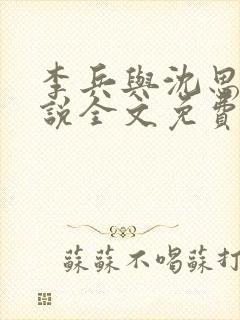 李兵與沈思
說全文免費
蘇蘇不喝蘇打